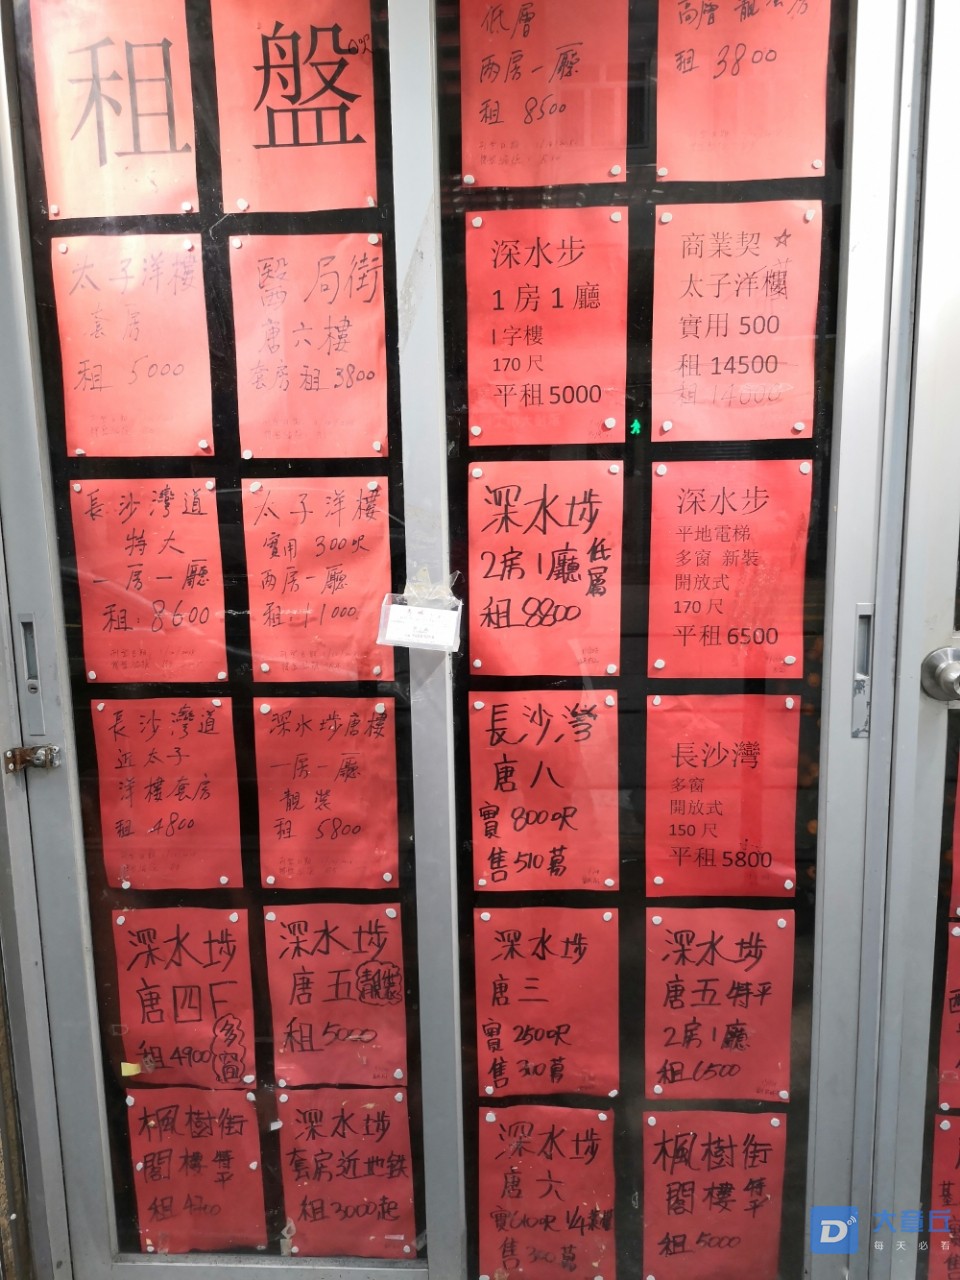 租
盤
低層
兩房一廳
租 8500
租 3800
太子洋樓
套房
租 5000
醫局街
唐六樓
套房租 3800
深水步
1 房 1 廳
I 字樓
170 尺
平租 5000
商業契 ☆
太子洋樓
實用 500
租 14500
租 14000
長沙灣道
特大
一房一廳
租: 8600
太子洋樓
實用 300呎
兩房一廳
租: 11000
深水埗
2房1廳
低層
租 8800
深水步
平地電梯
多窗 新裝
開放式
170 尺
平租 6500
長沙灣道
近太子
洋樓套房
租 4800
深水埗唐樓
一房一廳
靚裝
租 5800
長沙灣
唐八
實 800呎
售 510萬
長沙灣
多窗
開放式
150 尺
平租 5800
深水埗
唐四F
租 4900
多窗
深水埗
唐五
靚裝
租 5000
深水埗
唐三
實 250呎
售 300萬
深水埗
唐五 特平
2房1廳
租 6500
楓樹街
閣樓 特平
租 4700
深水埗
套房近地鉄
租 3000起
深水埗
唐六
售 300萬
楓樹街
閣樓 特平
租 5000
大章丘
每天必看